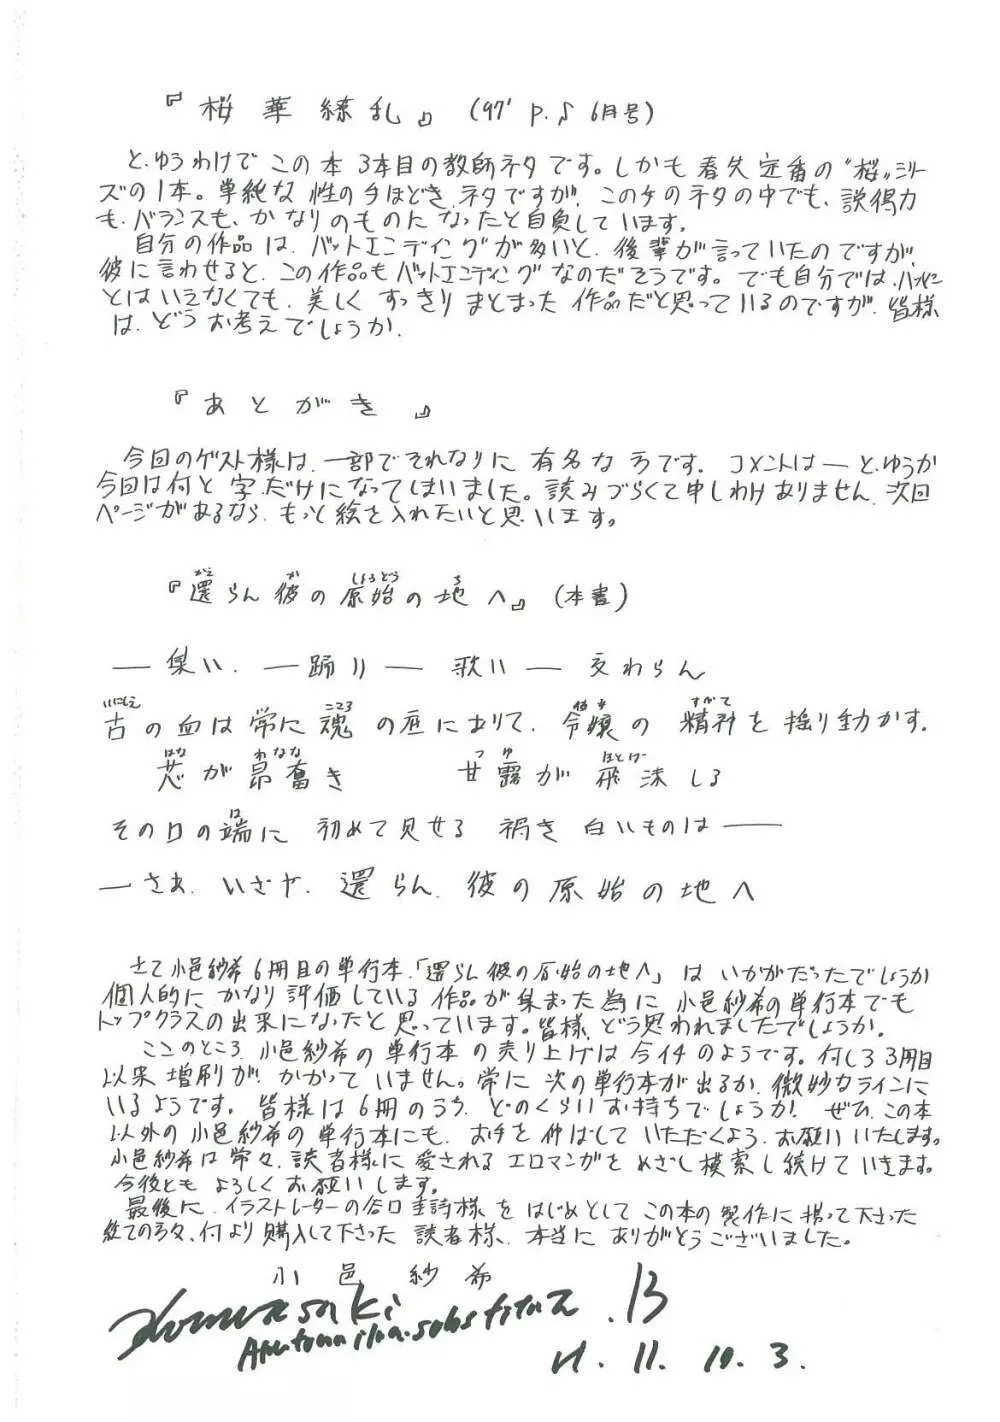 『桜華繚乱』 (97' P.♪ 6月号)
と、ゆうわけで この本 3本目の教師ネタです。しかも 春矢 定番の〝桜〟シリー
ズの1本。単純な 性の手ほどき ネタですが、この手のネタの中でも、説得力
も、バランスも、かなりのものになったと自負しています。
自分の作品は、バットエンディングが多いと、後輩が言っていたのですが、
彼に言わせると、この作品もバットエンディングなのだそうです。でも自分では、ハッピー
とはいえなくても、美しく すっきり まとまった 作品だと思っているのですが、皆様
は、どう お考えでしょうか。
『あとがき』
今回のゲスト様は、一部でそれなりに 有名な 方です。コメントは― と、ゆうか
今回は何と 字だけになってしまいました。読みづらくて申しわけありません、次回
ページがあるなら、もっと絵を入れたいと思います。
『還らん 彼の 原始の 地へ』 (本書)
― 集い、― 踊り ― 歌い ― 交わらん
古の血は 常に 魂 の座にありて、令嬢の 精神を 揺り動かす。
芯が 昂奮き 甘露が 飛沫しる
その口の端に 初めて見せる 禍き 白いものは ――
― さあ、いざや、還らん、彼の 原始の地へ
さて 小邑紗希 6冊目の単行本、「還らん 彼の原始の地へ」は いかがだったでしょうか
個人的に かなり 評価している 作品が 集まった為に 小邑紗希の単行本でも
トップクラスの出来になったと思っています。皆様、どう思われましたでしょうか。
ここのところ、小邑紗希の 単行本 の売り上げは 今イチのようです。何しろ 3冊目
以来 増刷が かかって いません。常に 次の単行本が出るか、微妙なラインに
いるようです。皆様は 6冊のうち、どのくらい お持ちでしょうか! ぜひ、この本
以外の 小邑紗希の 単行本にも、お手を 伸ばして いただくよう、お願い いたします。
小邑紗希は 常々、読者様に 愛される エロマンガを めざし 模索し 続けて いきます。
今後とも よろしく お願いします。
最後に、イラストレーターの谷口圭詩様 を はじめとして この本の 製作に 携って 下さった
総ての方々、何より 購入して下さった 読者様、本当に ありがとうございました。
小邑 紗希
H. 11. 10. 3.